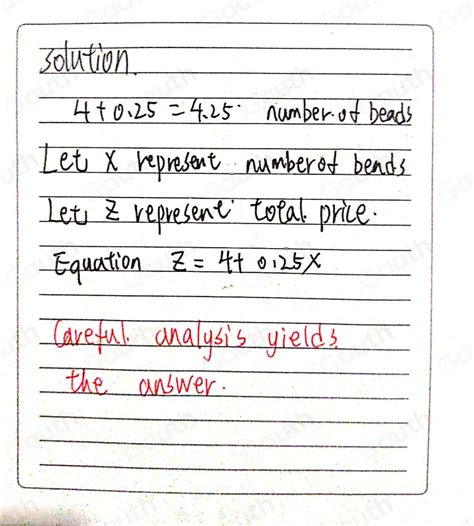 solution.
4+0.25 = 4.25 number of beads
Let x represent number of bends
Let z represent total price.
Equation z = 4+ 0.25x
Careful analysis yields
the answer.